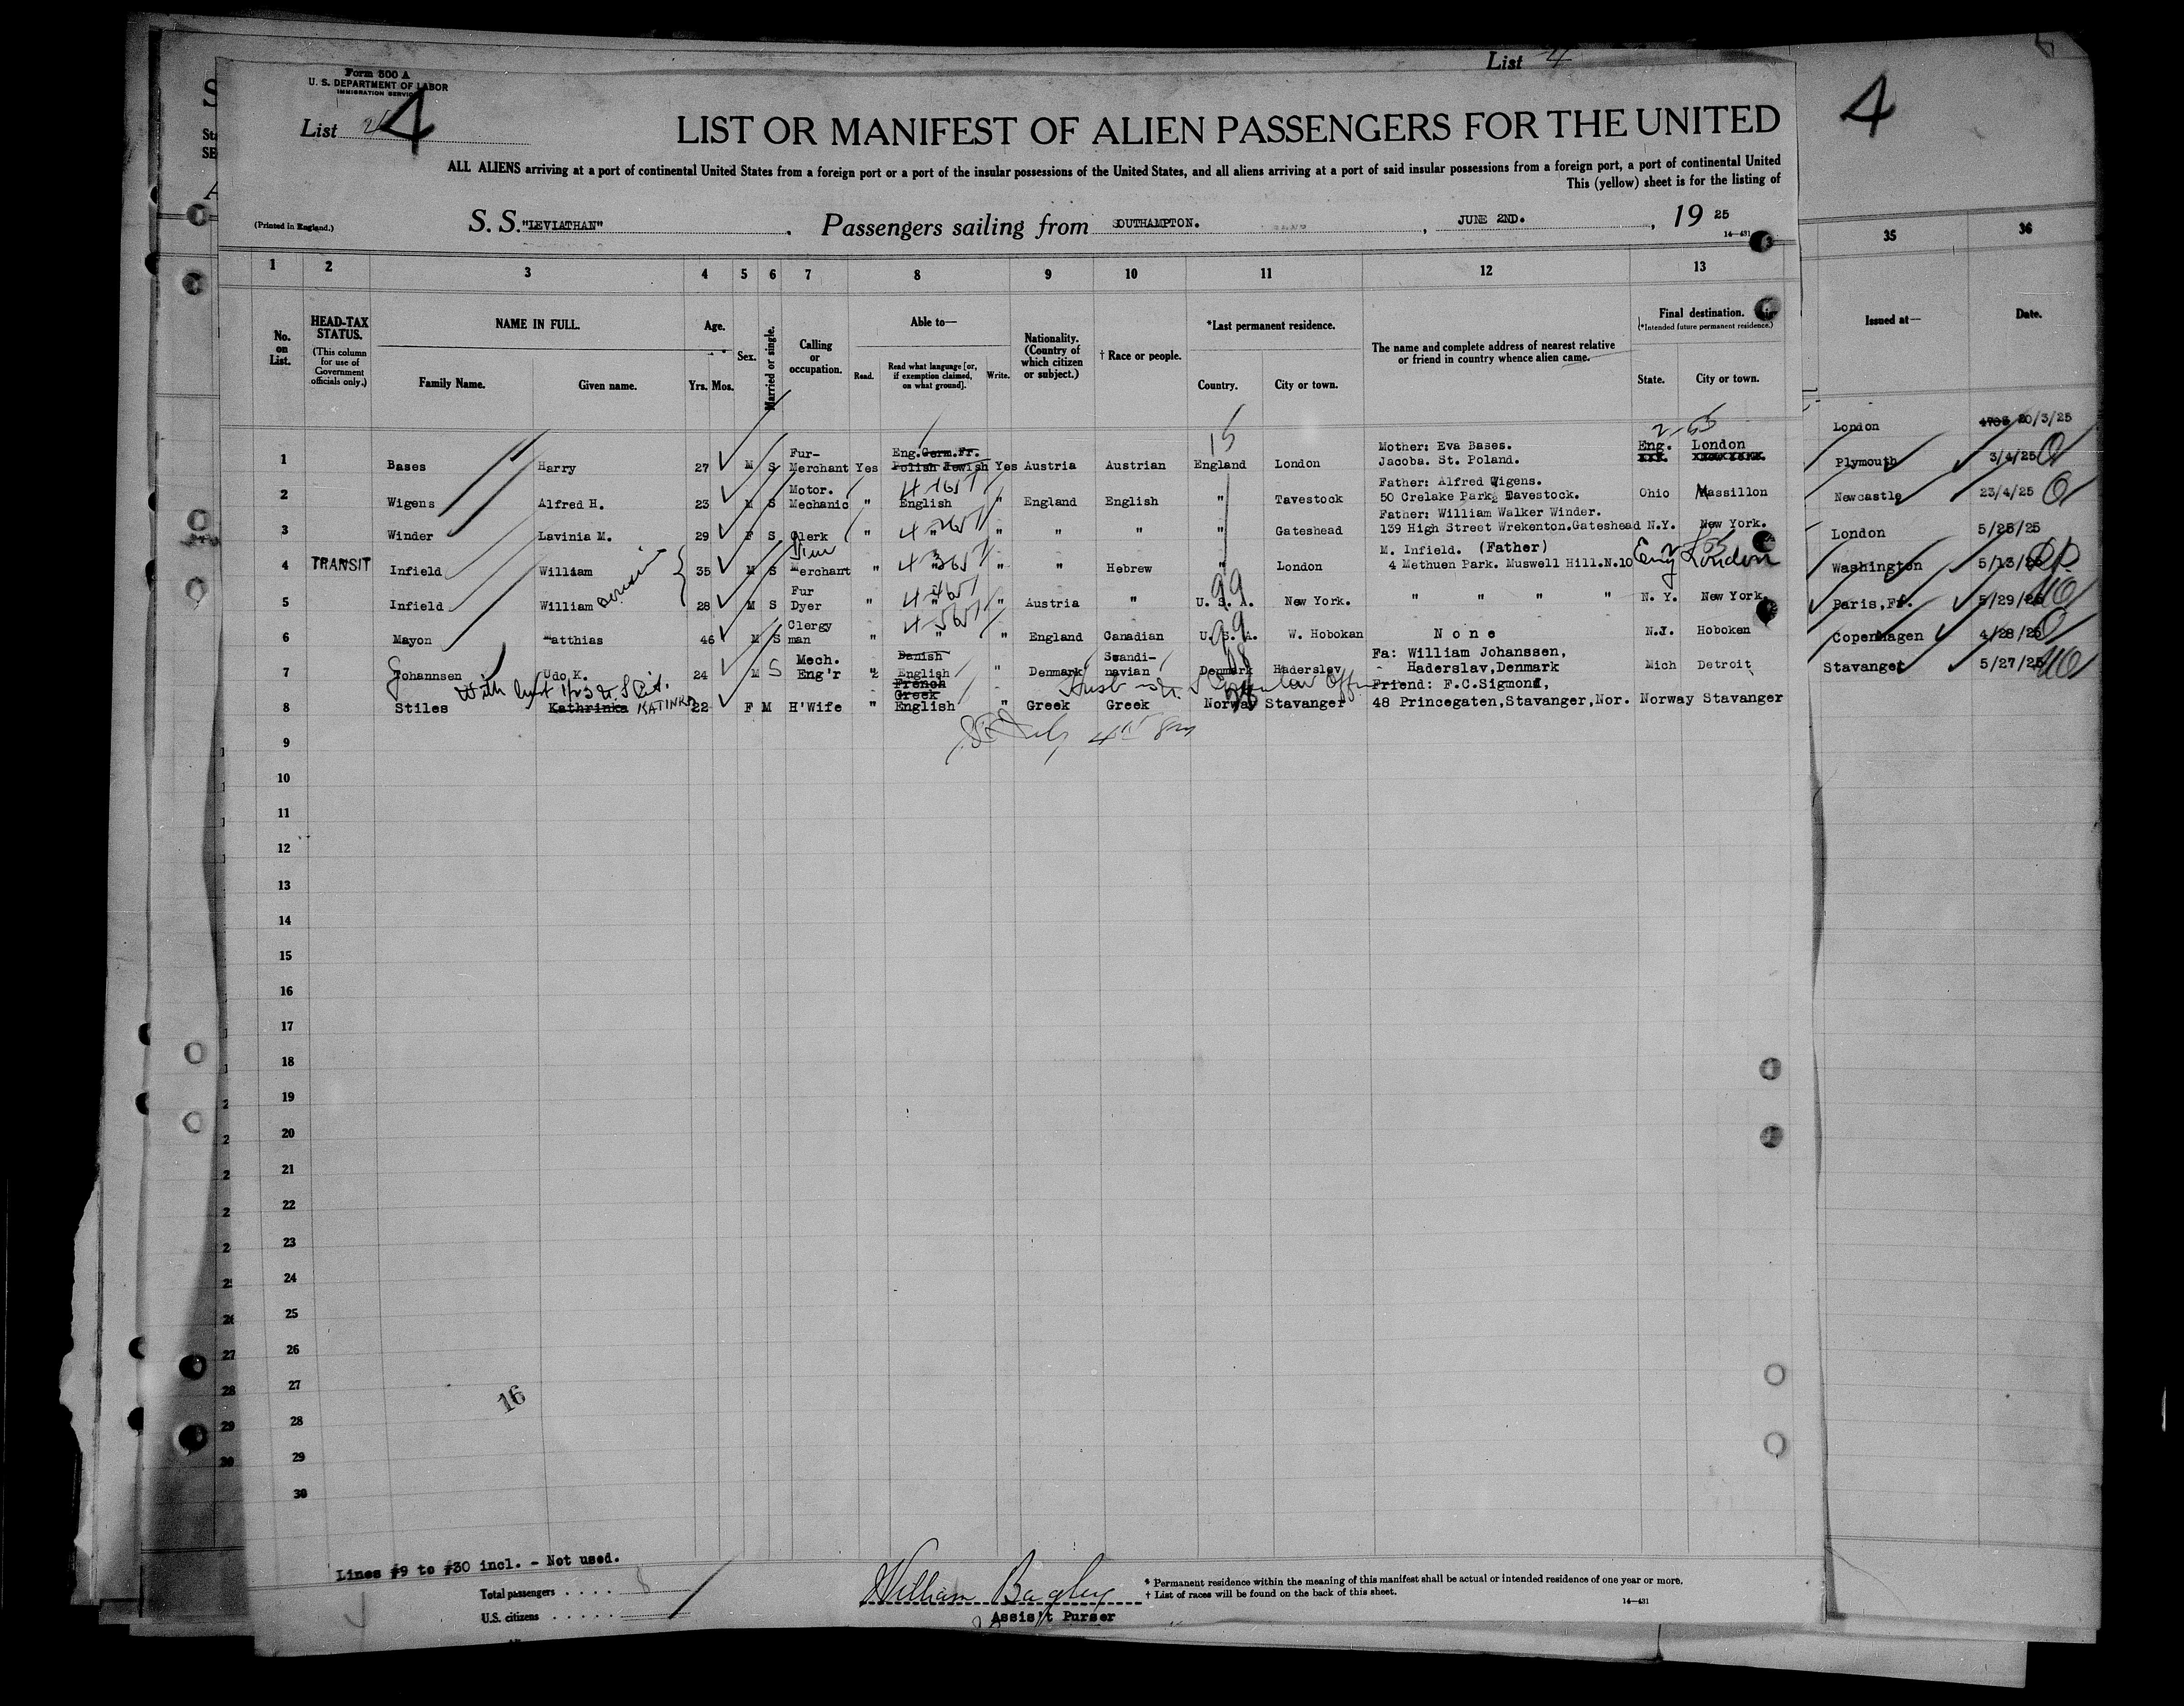 List 4
Form 500 A
U. S. DEPARTMENT OF LABOR
IMMIGRATION SERVICE
List 4
4
LIST OR MANIFEST OF ALIEN PASSENGERS FOR THE UNITED
ALL ALIENS arriving at a port of continental United States from a foreign port or a port of the insular possessions of the United States, and all aliens arriving at a port of said insular possessions from a foreign port, a port of continental United
This (yellow) sheet is for the listing of
(Printed in England.) S. S. "LEVIATHAN" . Passengers sailing from SOUTHAMPTON. , JUNE 2ND. , 19 25
14—431
1 2 3 4 5 6 7 8 9 10 11 12 13 35 36
No. on List. HEAD-TAX STATUS. (This column for use of Government officials only.) NAME IN FULL. Family Name. Given name. Age. Yrs. Mos. Sex. Married or single. Calling or occupation. Able to— Read. Read what language [or, if exemption claimed, on what ground]. Write. Nationality. (Country of which citizen or subject.) † Race or people. *Last permanent residence. Country. City or town. The name and complete address of nearest relative or friend in country whence alien came. Final destination. (*Intended future permanent residence.) State. City or town. Issued at— Date.
15 2-63
Fur- Eng. Germ. Fr. Mother: Eva Bases. Eng. London London 20/3/25
1 Bases Harry 27 M S Merchant Yes Polish Jewish Yes Austria Austrian England London Jacoba. St. Poland.
Motor. Father: Alfred Wigens. Plymouth 3/4/25
2 Wigens Alfred H. 23 M S Mechanic " English " England English " Tavestock 50 Crelake Park, Tavestock. Ohio Massillon
Father: William Walker Winder. Newcastle 23/4/25
3 Winder Lavinia M. 29 F S Clerk " " " " " " Gateshead 139 High Street Wrekenton.Gateshead N.Y. New York.
M. Infield. (Father) London 5/25/25
4 TRANSIT Infield William 35 M S Merchant " " " " Hebrew " London 4 Methuen Park. Muswell Hill.N.10 Eng London
Fur 99 Washington
5 Infield William cousin 28 M S Dyer " " " Austria " U. S. A. New York. " " " " N. Y. New York.
Clergy 99 Paris, Fr. 5/29/25
6 Mayon Matthias 46 M S man " " " England Canadian U. S. A. W. Hoboken None N.J. Hoboken
Mech. Danish Scandi- Fa: William Johanssen, Copenhagen 4/28/25
7 Johannsen Udo K. 24 M S Eng'r " English " Denmark navian Denmark Haderslev Haderslav,Denmark Mich Detroit
French Friend: F.C.Sigmond, Stavanger 5/27/25
Greek
8 Stiles Kathrinka KATINKA 22 F M H'Wife " English " Greek Greek Norway Stavanger 48 Princegaten,Stavanger,Nor. Norway Stavanger
9
10
11
12
13
14
15
16
17
18
19
20
21
22
23
24
25
26
27
28
29
30
16
Lines #9 to #30 incl. - Not used.
Total passengers . . . . 8
U.S. citizens . . . . .
William Bagley
Assis't Purser
* Permanent residence within the meaning of this manifest shall be actual or intended residence of one year or more.
† List of races will be found on the back of this sheet.
14—431